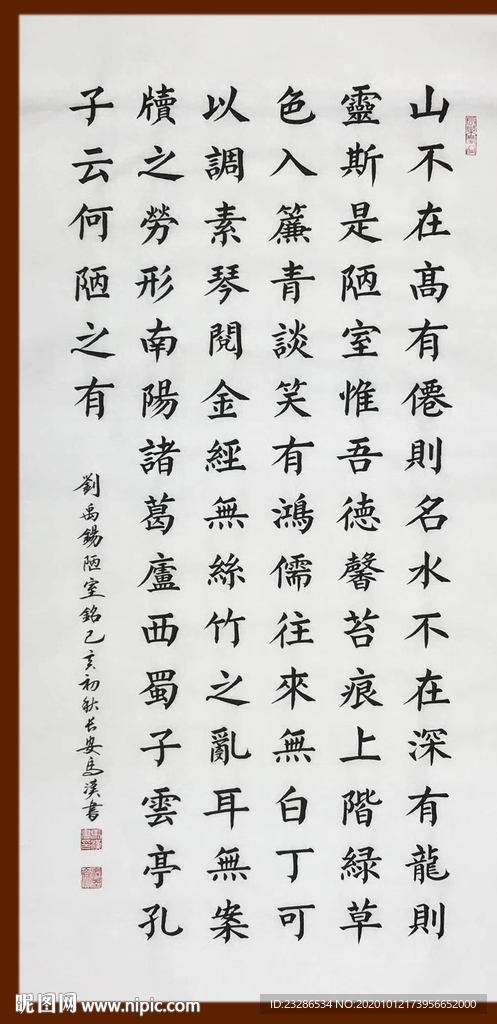 山不在髙有僊則名水不在深有龍則
靈斯是陋室惟吾德馨苔痕上階綠草
色入簾青談笑有鴻儒往來無白丁可
以調素琴閱金經無絲竹之亂耳無案
牘之勞形南陽諸葛廬西蜀子雲亭孔
子云何陋之有
劉禹錫陋室銘乙亥初秋長安馬漢書
昵图网 www.nipic.com
ID:23286534 NO:20201012173956652000